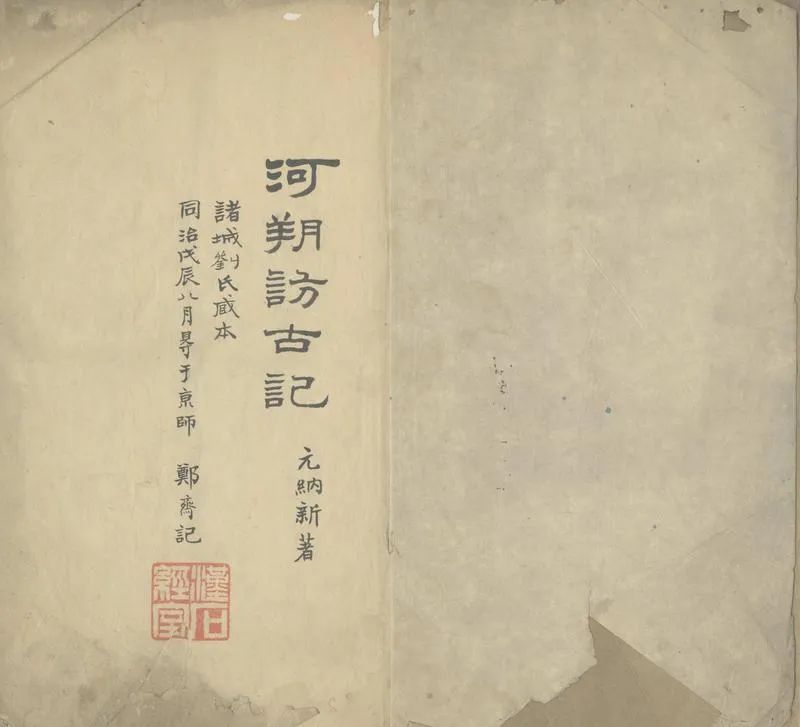 河朔訪古記
元納新著
諸城劉氏藏本
同治戊辰八月㝵于亰師 鄭齋記
漢石
經室